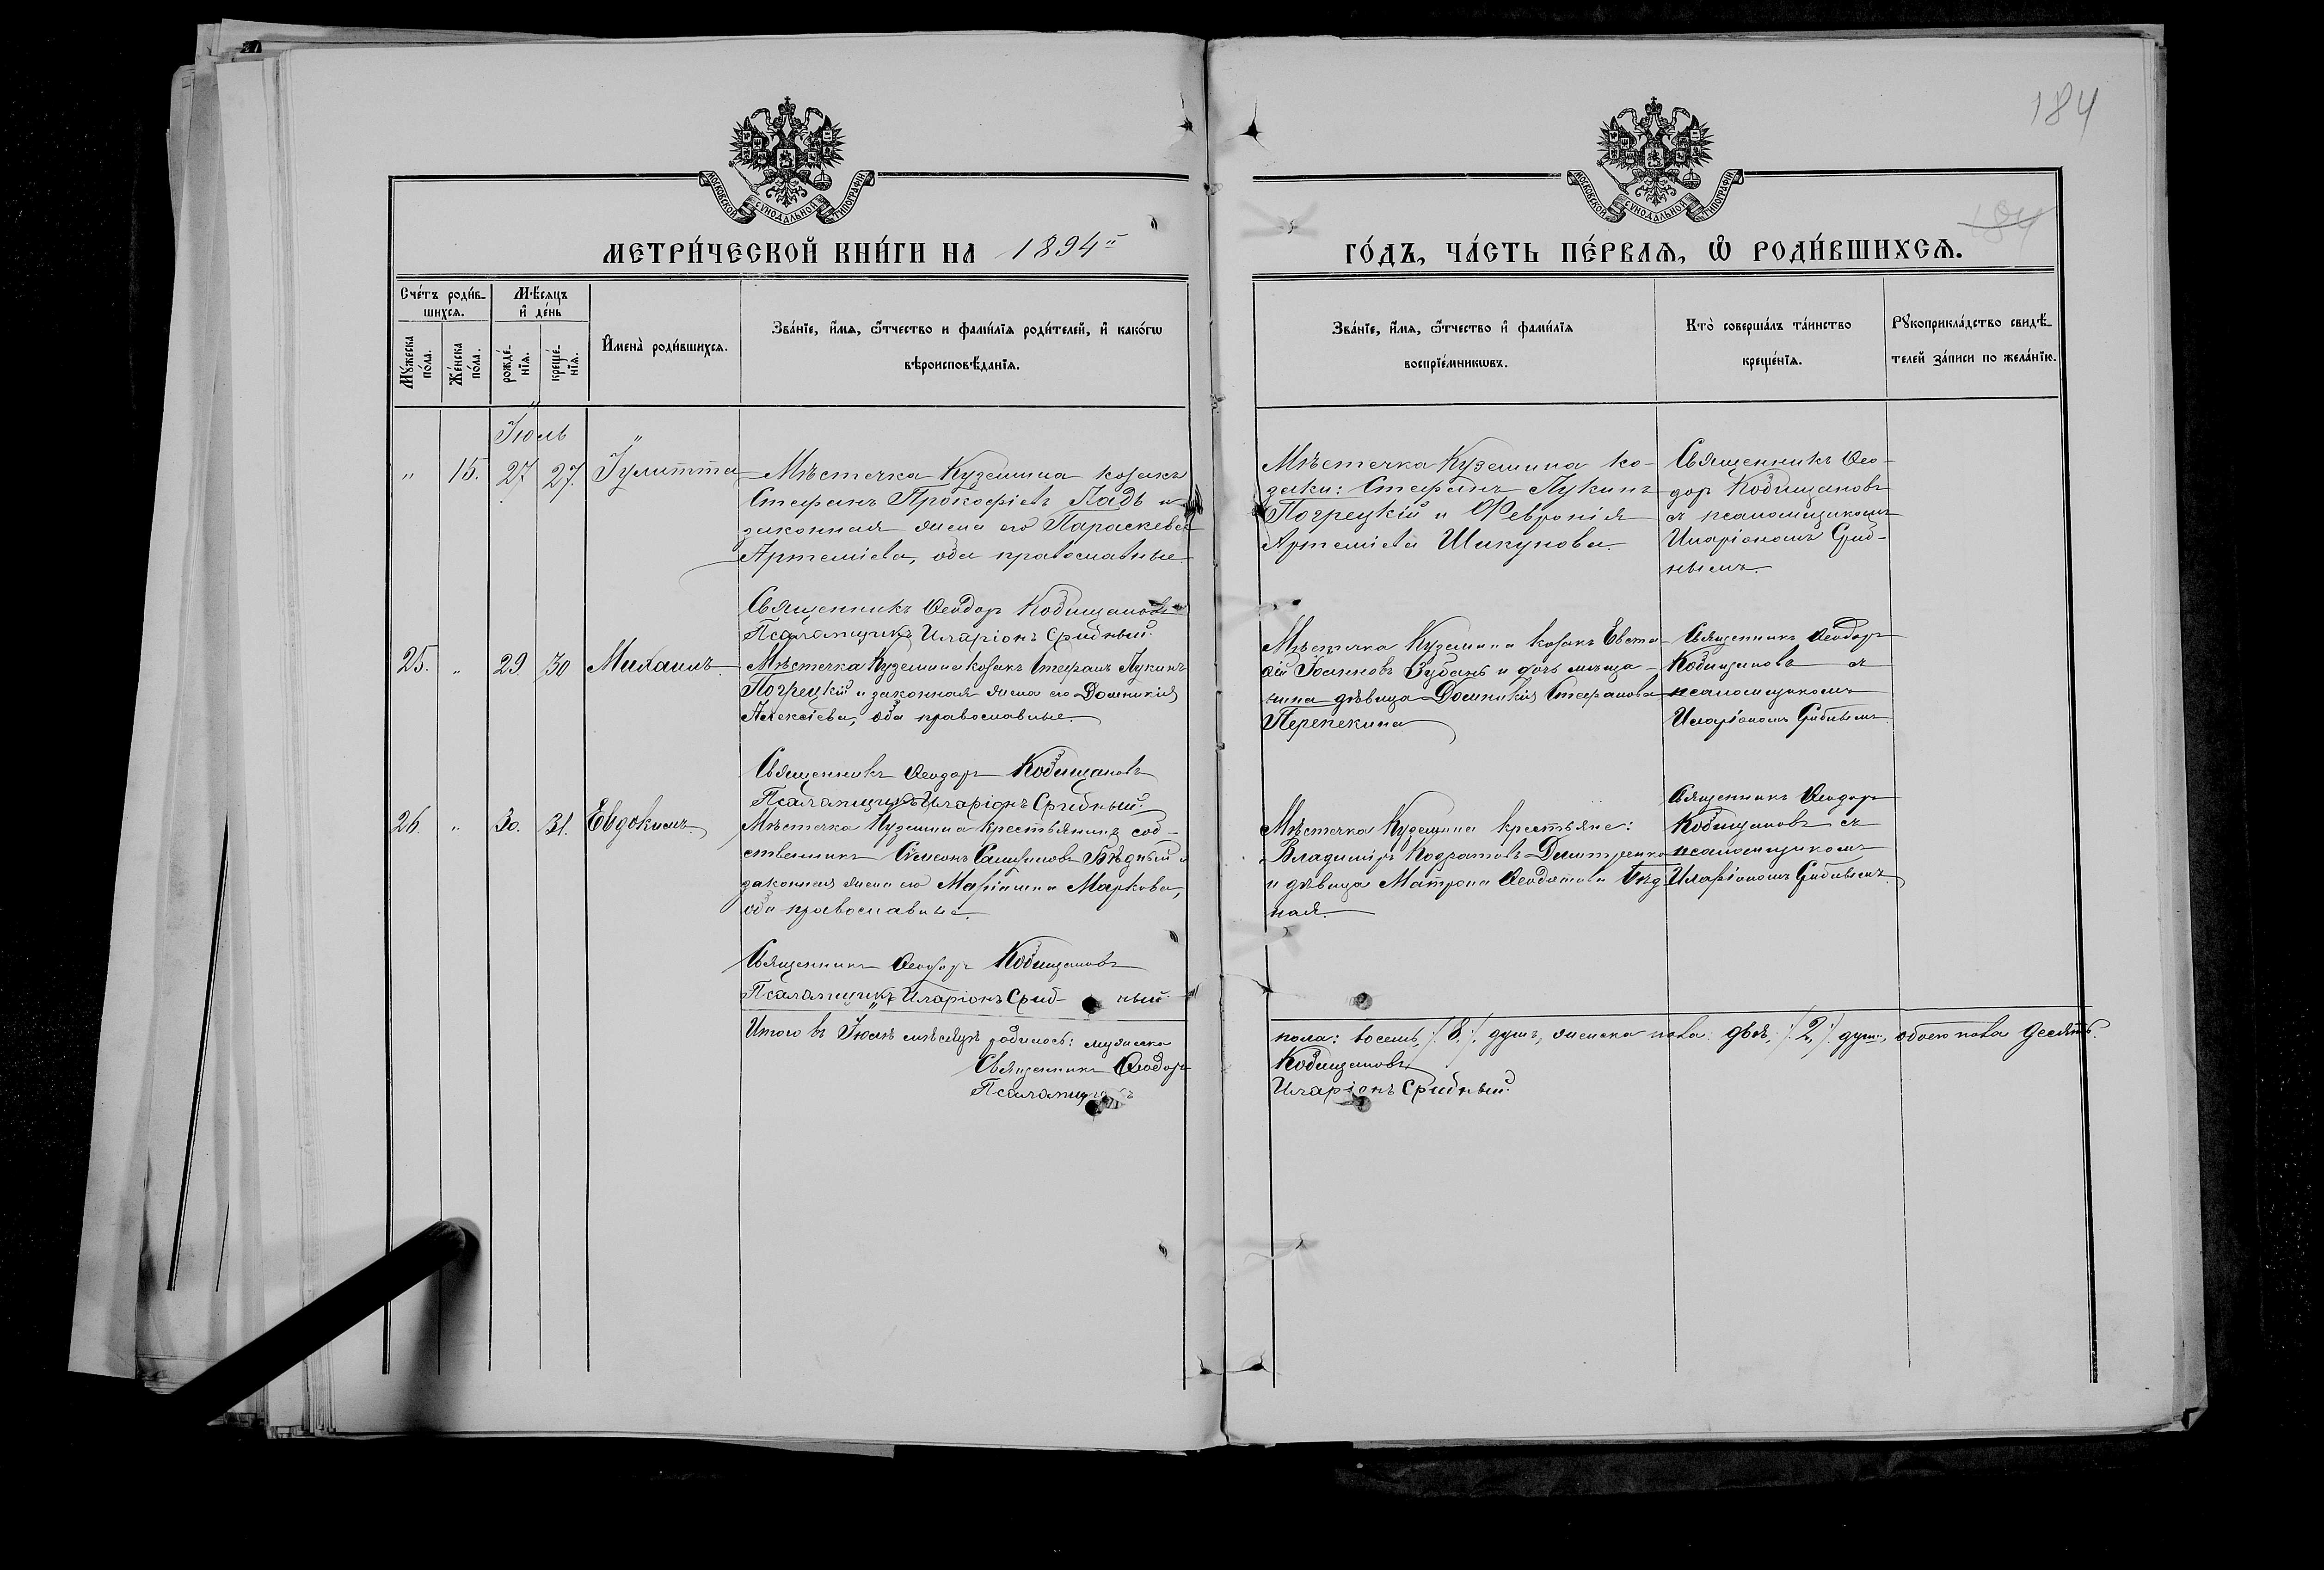 184
МОСКОВСКОЙ СѴНОДАЛЬНОЙ ТИПОГРАФІИ
МОСКОВСКОЙ СѴНОДАЛЬНОЙ ТИПОГРАФІИ
184
МЕТРИ́ЧЕСКОЙ КНИ́ГИ НА 1894й
ГО́ДЪ, ЧА́СТЬ ПЕ́РВАЯ, Ѿ РОДИ́ВШИХСЯ.
Сче́тъ роди́в-
шихся.
Мꙋ́жеска по́ла.
Же́нска по́ла.
Мѣ́сяцъ и҆ де́нь
рожде́-
нїя.
креще́-
нїя.
И҆мена̀ роди́вшихся.
Зва́нїе, и҆́мя, ѻ҆́тчество и фами́лїя роди́телей, и҆ како́гѡ
вѣроисповѣ́данїя.
Зва́нїе, и҆́мя, ѻ҆́тчество и҆ фами́лїя
воспрїе́мникѡвъ.
Кто̀ соверша́лъ та́инство
креще́нїя.
Рꙋкоприкла́дство свидѣ́-
телей за́писи по жела́нїю.
Іюль
" 15. 27 27. Іулитта
Мѣстечка Куземина козакъ
Стефанъ Прокофіевъ Ладъ и
законная жена его Параскева
Артеміева, оба православные.
Мѣстечка Куземина ко-
заки: Стефанъ Лукинъ
Погрецкій и Февронія
Артеміева Шикунова.
Священникъ Ѳео-
доръ Кобищановъ
съ псаломщикомъ
Иларіономъ Сриб-
нымъ.
Священникъ Ѳеодоръ Кобищановъ
Псаломщикъ Иларіонъ Срибный.
25. " 29 30 Михаилъ.
Мѣстечка Куземина козакъ Стефанъ Лукинъ
Погрецкій и законная жена его Домникія
Алексіева, оба православные.
Мѣстечка Куземина козакъ Евста-
фій Іоанновъ Зубань и дочь мѣща-
нина дѣвица Домникія Стефанова
Перепекина
Священникъ Ѳеодоръ
Кобищановъ съ
псаломщикомъ
Иларіономъ Срибнымъ.
Священникъ Ѳеодоръ Кобищановъ
Псаломщикъ Иларіонъ Срибный.
26. " 30. 31. Евдокимъ.
Мѣстечка Куземина крестьянинъ соб-
ственникъ Сѵмеонъ Бѣдный и
законная жена его Маріанна Маркова,
оба православные.
Мѣстечка Куземина крестьяне:
Владиміръ Кодратовъ Дмитренко
и дѣвица Матрона Ѳеодотова Бѣд-
ная.
Священникъ Ѳеодоръ
Кобищановъ съ
псаломщикомъ
Иларіономъ Срибнымъ.
Священникъ Ѳеодоръ Кобищановъ
Псаломщикъ Иларіонъ Сриб- ный.
Итого въ Іюлѣ мѣсяцѣ родилось: мужеска
пола: восемь, /. 8 ./. душъ, женска пола: двѣ, /. 2 ./. души, обоего пола десять.
Священникъ Ѳеодоръ
Кобищановъ
Псаломщикъ
Иларіонъ Срибный.